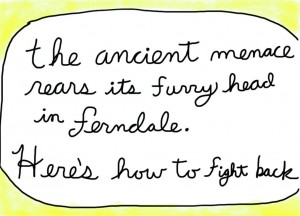 the ancient menace
rears its furry head
in ferndale.
Here's how to fight back